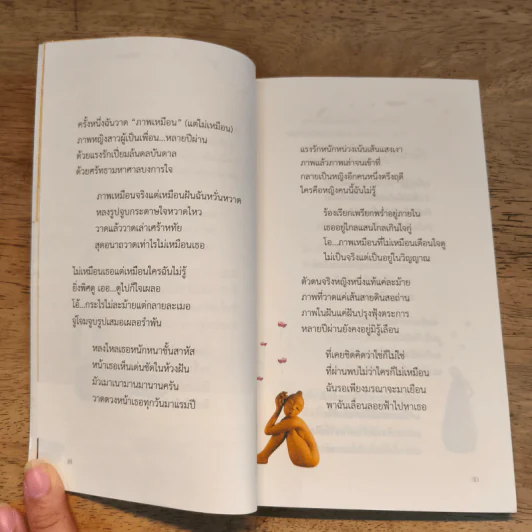 ครั้งหนึ่งฉันวาด “ภาพเหมือน” (แต่ไม่เหมือน)
ภาพหญิงสาวผู้เป็นเพื่อน...หลายปีผ่าน
ด้วยแรงรักเปี่ยมล้นดลบันดาล
ด้วยศรัทธามหาศาลบงการใจ
ภาพเหมือนจริงแต่เหมือนฝันฉันหรั่นหวาด
หลงรูปจูบกระดาษใจหวาดไหว
วาดแล้ววาดเล่าเศร้าหทัย
สุดอนาถวาดเท่าไรไม่เหมือนเธอ
ไม่เหมือนเธอแต่เหมือนใครฉันไม่รู้
ยิ่งพิศดู เออ...ดูไปก็ใจเผลอ
โอ้...กระไรไม่ละม้ายแต่กลายละเมอ
จู่โจมจูบรูปเสมอเผลอรำพัน
หลงใหลเธอหนักหนาขั้นสาหัส
หน้าเธอเห็นเด่นชัดในห้วงฝัน
มัวเมาเนานานมานานครัน
วาดดวงหน้าเธอทุกวันมาแรมปี
แรงรักหนักหน่วงเน้นเส้นแสงเงา
ภาพแล้วภาพเล่าจนเข้าที่
กลายเป็นหญิงอีกคนหนึ่งตรึงฤดี
ใครคือหญิงคนนี้ฉันไม่รู้
ร้องเรียกเพรียกพร่ำอยู่ภายใน
เธออยู่ใกลแสนไกลเกินใจคู่
โอ้...ภาพเหมือนที่ไม่เหมือนเตือนใจดู
ไม่เป็นจริงแต่เป็นอยู่ในวิญญาณ
ตัวตนจริงหญิงหนึ่งแท้แค่ละม้าย
ภาพที่วาดแค่เส้นสายดินสอถ่าน
ภาพในฝันแค่ฝันปรุงฟุ้งตระการ
หลายปีผ่านยังคงอยู่มิรู้เลือน
ที่เคยชิดคิดว่าใช่ก็ไม่ใช่
ที่ผ่านพบไม่ว่าใครก็ไม่เหมือน
ฉันรอเพียงมรณาจะมาเยือน
พาฉันเลื่อนลอยฟ้าไปหาเธอ